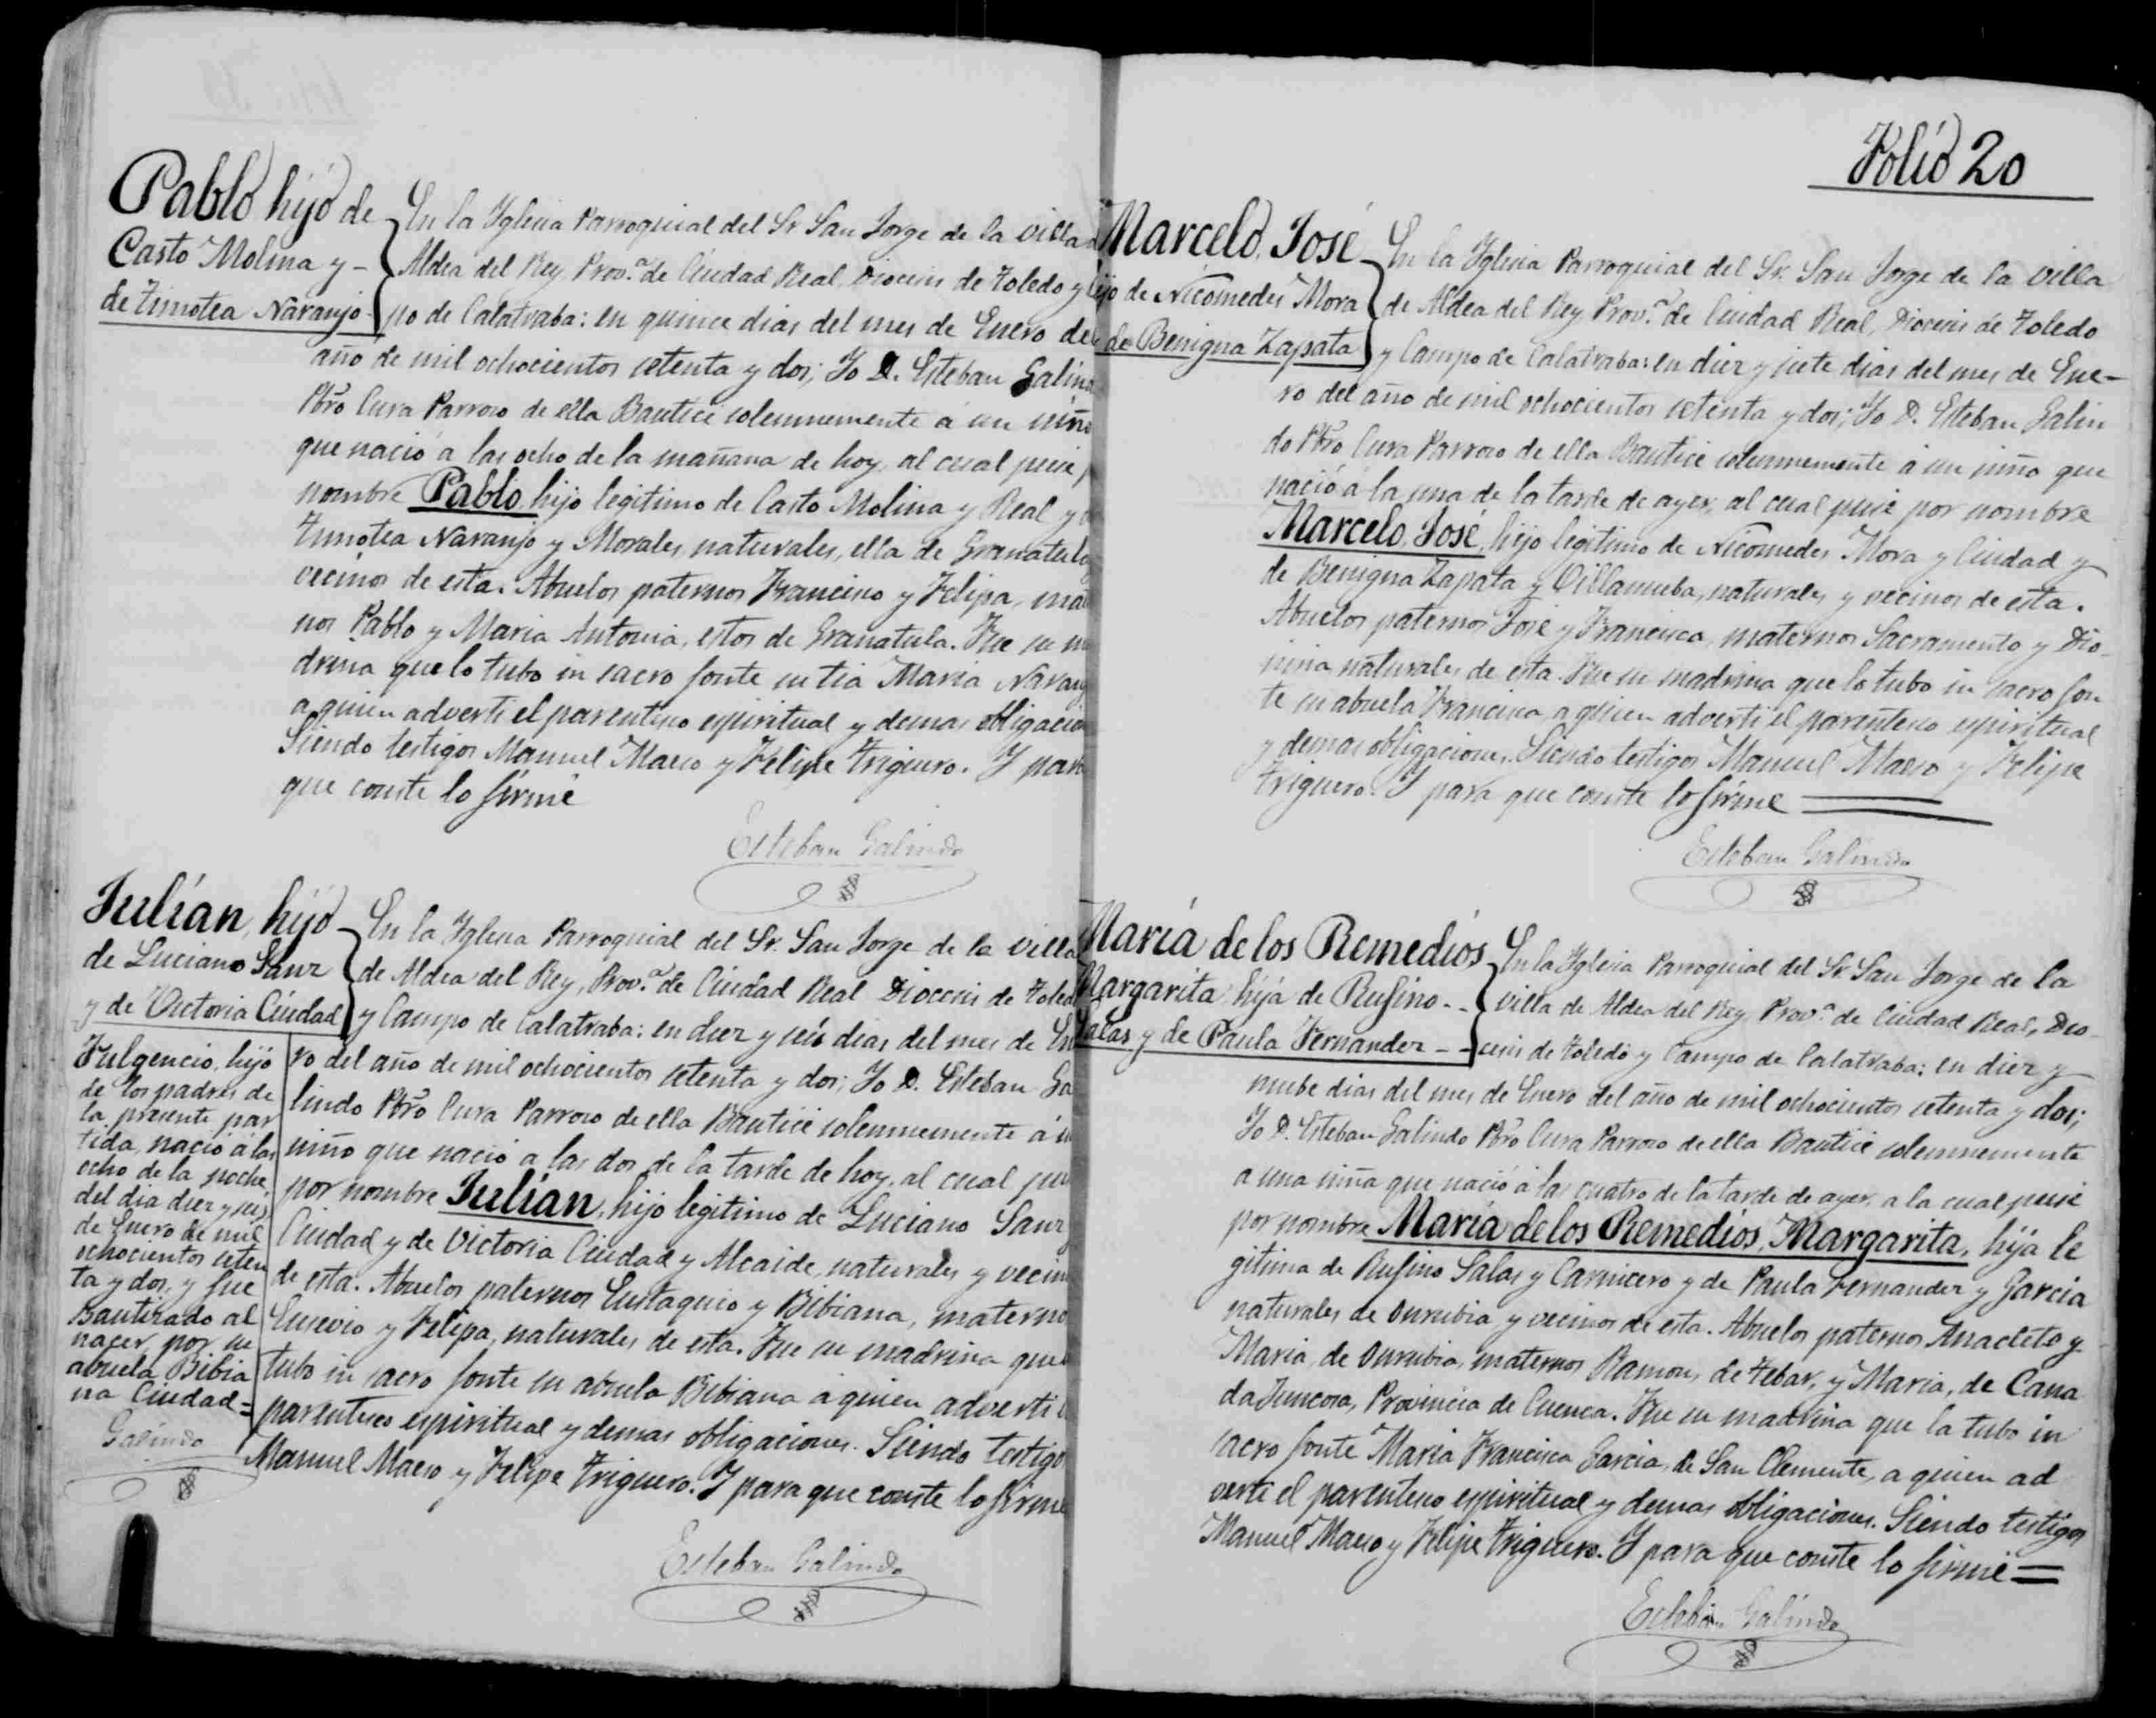 Pablo hijo de
Casto Molina y -
de Timotea Naranjo
En la Yglesia Parroquial del Sr San Jorge de la villa
Aldea del Rey, Prov.ª de Ciudad Real, Diocesis de Toledo y
po de Calatraba: en quince dias del mes de Enero de
año de mil ochocientos setenta y dos; Yo D. Esteban Galin
Pbrõ Cura Parroco de ella Bauticé solemnemente á un niño
que nació á las ocho de la mañana de hoy, al cual puse
nombre Pablo, hijo legitimo de Casto Molina y Real y
Timotea Naranjo y Morales naturales, ella de Granatula
vecinos de esta. Abuelos paternos Francisco y Felipa, mater
nos Pablo y Maria Antonia, estos de Granatula. Fue su ma
drina que lo tubo in sacro fonte su tia Maria Naranj
a quien adverti el parentesco espiritual y demas obligacion
Siendo testigos Manuel Maeso y Felipe Triguero. Y para
que conste lo firmé
Esteban Galindo
Julián, hijo
de Luciano Sanz
y de Victoria Ciudad
En la Yglesia Parroquial del Sr. San Jorge de la villa
de Aldea del Rey, Prov.ª de Ciudad Real Diocesis de Toled
y Campo de Calatraba: en diez y seis dias del mes de En
ro del año de mil ochocientos setenta y dos; Yo D. Esteban Ga
lindo Pbrõ Cura Parroco de ella Bauticé solemnemente á u
niño que nació á las dos de la tarde de hoy, al cual pu
por nombre Julián, hijo legitimo de Luciano Sanz
Ciudad y de Victoria Ciudad y Alcaide, naturales y vecin
de esta. Abuelos paternos Eustaquio y Bibiana, materno
Eusevio y Felipa, naturales de esta. Fue su madrina que
tubo in sacro fonte su abuela Bibiana á quien adverti
parentesco espiritual y demas obligaciones. Siendo testigo
Manuel Maeso y Felipe Triguero. Y para que conste lo firmé
Esteban Galindo
Fulgencio, hijo
de los padres de
la presente par
tida, nació á las
ocho de la noche
del dia diez y seis
de Enero de mil
ochocientos seten
ta y dos, y fue
Bautizado al
nacer, por su
abuela Bibia
na Ciudad=
Galindo
Folio 20
Marcelo, José
hijo de Nicomedes Mora
de Benigna Zapata
En la Yglesia Parroquial del Sr. San Jorge de la villa
de Aldea del Rey Prov.ª de Ciudad Real, Diocesis de Toledo
y Campo de Calatraba: en diez y siete dias del mes de Ene-
ro del año de mil ochocientos setenta y dos; Yo D. Esteban Galin
do Pbrõ Cura Parroco de ella Bauticé solemnemente á un niño que
nació á la una de la tarde de ayer, al cual puse por nombre
Marcelo, José, hijo legitimo de Nicomedes Mora y Ciudad y
de Benigna Zapata y Villanueba, naturales y vecinos de esta.
Abuelos paternos José y Francisca, maternos Sacramento y Dio-
nisia naturales de esta. Fue su madrina que lo tubo in sacro fon
te su abuela Francisca, a quien adverti el parentesco espiritual
y demas obligaciones. Siendo testigos Manuel Maeso y Felipe
Triguero. Y para que conste lo firmé
Esteban Galindo
María de los Remedios
Margarita hija de Rufino - -
Salas y de Paula Fernandez - -
En la Yglesia Parroquial del Sr. San Jorge de la
villa de Aldea del Rey, Prov.ª de Ciudad Real, Dio-
cesis de Toledo y Campo de Calatraba: en diez y
nuebe dias del mes de Enero del año de mil ochocientos setenta y dos;
Yo D. Esteban Galindo Pbrõ Cura Parroco de ella Bauticé solemnemente
a una niña que nació á las cuatro de la tarde de ayer, a la cual puse
por nombre María de los Remedios, Margarita, hija le
gitima de Rufino Salas y Carnicero y de Paula Fernandez y Garcia
naturales de Ourubia y vecinos de esta. Abuelos paternos Anacleto y
Maria, de Ourubia, maternos Ramon, de Tebar, y Maria, de Caña
da Juncosa, Provincia de Cuenca. Fue su madrina que la tubo in
sacro fonte Maria Francisca Garcia, de San Clemente, a quien ad
verti el parentesco espiritual y demas obligaciones. Siendo testigos
Manuel Maeso y Felipe Triguero. Y para que conste lo firmé=
Esteban Galindo